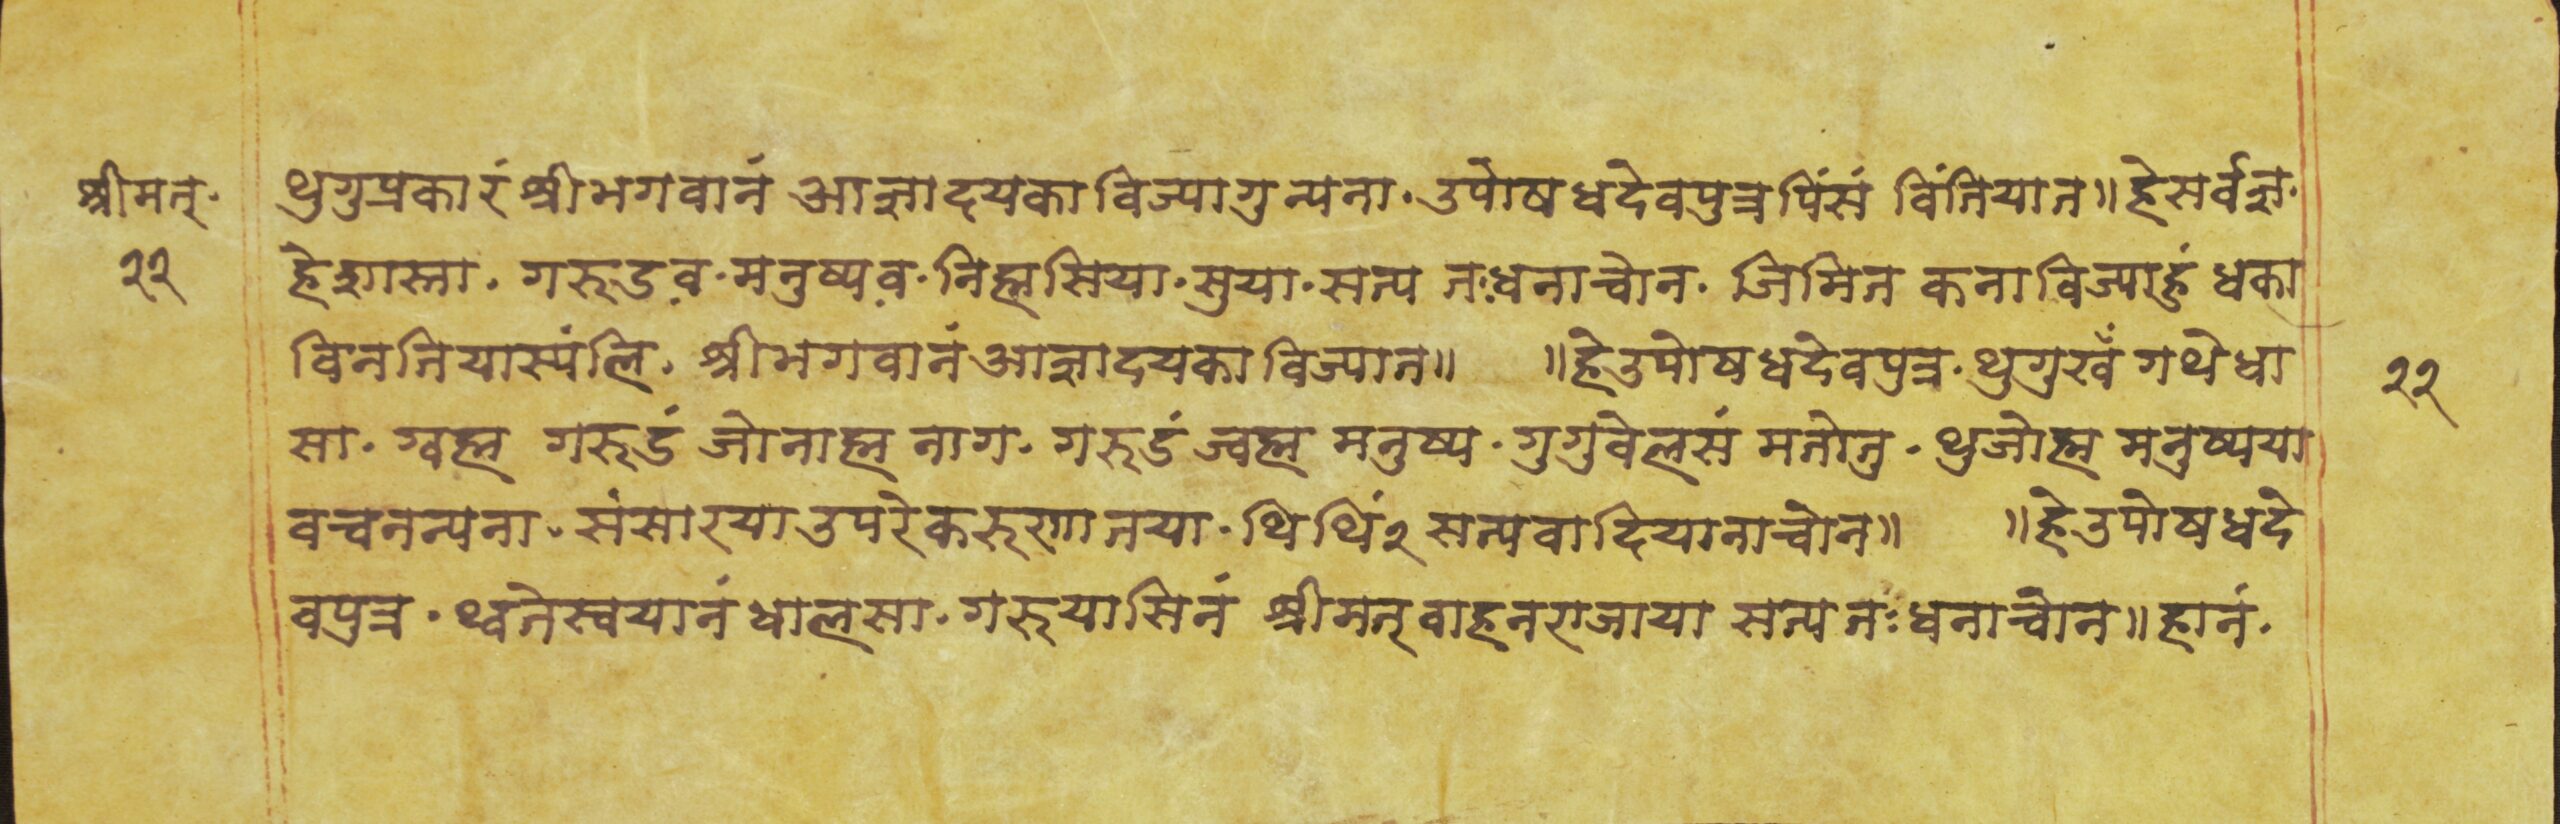 श्रीमत्·
२२
थुगुप्रकारं श्रीभगवानं आज्ञादयका विज्यागु न्यना· उपोषधदेवपुत्रपिंसं विंतियात॥ हे सर्वज्ञ·
हे शास्ता· गरूडव·मनुष्यव·निह्मसिया·सुया·सत्य तःधनाच्वोन· जिमित कनाविज्याहुं धका
विनतियास्यंलि· श्रीभगवानं आज्ञादयका विज्यात॥ ॥हे उपोषधदेवपुत्र· थुगुखँ गथेधा
सा· ग्वह्म गरूडं जोनाह्म नाग· गरूडं ज्वह्म मनुष्य· गुगुवेलसं मतोतु· थुजोह्म मनुष्यया
वचनन्यना· संसारया उपरे करूणातया· थिथिं२ सत्यवादियानाच्वोन॥ ॥हे उपोषधदे
वपुत्र· थ्वतेस्वयानं धालसा· गरूयासिनं श्रीमत्वाहनराजाया सत्य तःधनाच्वोन॥ हानं·
२२